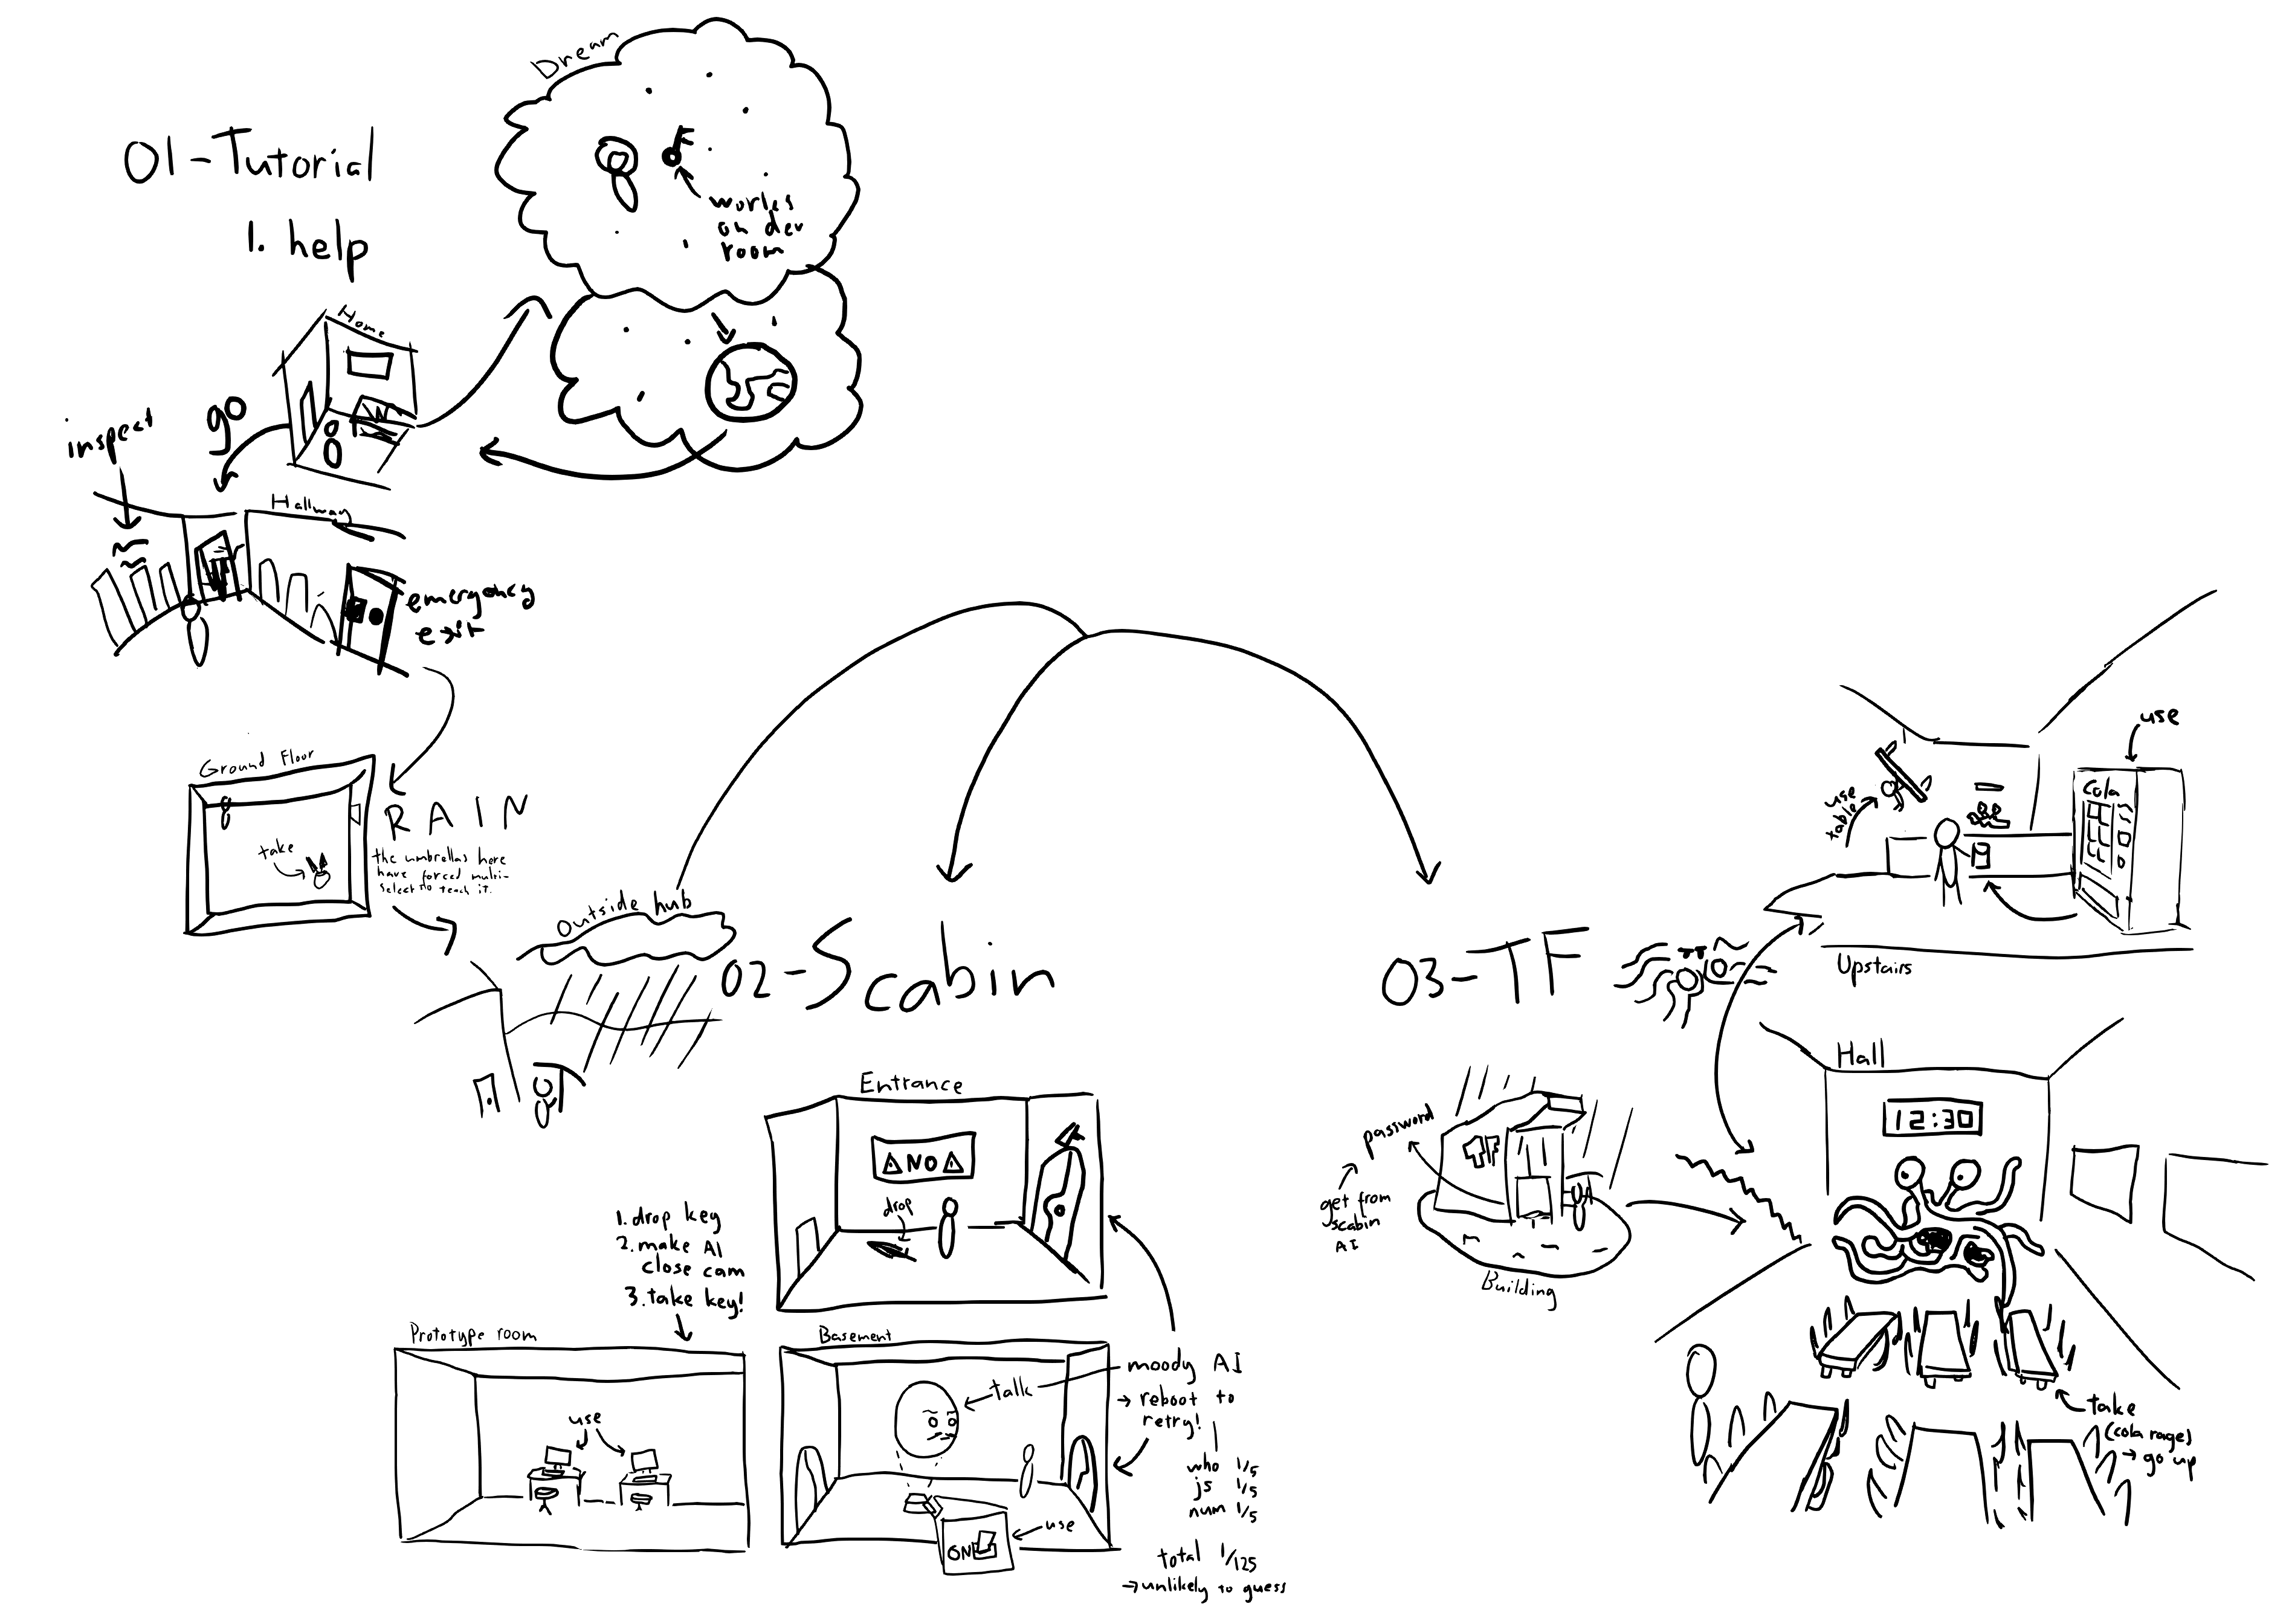 01-Tutorial
1. help
Dream
works
on dev
room
Home
go
inspect
Hallway
emergency
exit
Ground Floor
take
RAIN
the umbrellas here
have forced multi-
select to teach it.
Outside hub
02-Scabin
Entrance
NO
drop
1. drop key
2. make AI
close cam
3. take key!
Prototype room
use
Basement
talk
moody AI
→ reboot to
retry!
who 1/5
js 1/5
num 1/5
total 1/125
→ unlikely to guess
ON
use
03-TF
password
get from
scabin
AI
TF
Building
use
table
use
Cola
Upstairs
Hall
12:30
take
(cola rage)
→ go up